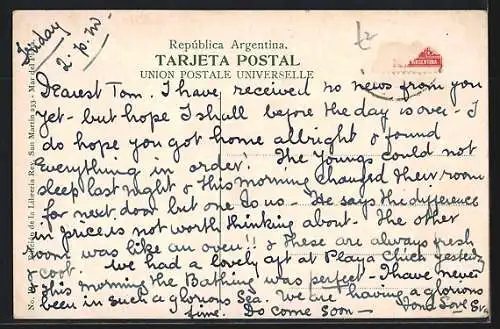 Friday
2. p.m
República Argentina.
TARJETA POSTAL
UNION POSTALE UNIVERSELLE
ARGENTINA
Dearest Tom. I have received no news from you
yet - but hope I shall before the day is over - I
do hope you got home allright & found
everything in order! The Youngs could not
sleep last night & this morning changed their room
for next door but one to us - He says the difference
in price is not worth thinking about - The other
room was like an oven!! & these are always fresh
& cool. We had a lovely aft at Playa Chica yesterday
this morning the Bathing was perfect - I have never
been in such a glorious Sea. We are having a glorious
time. Do come soon - Fond Love
Edición de la Librería Rey, San Martin 233 - Mar del